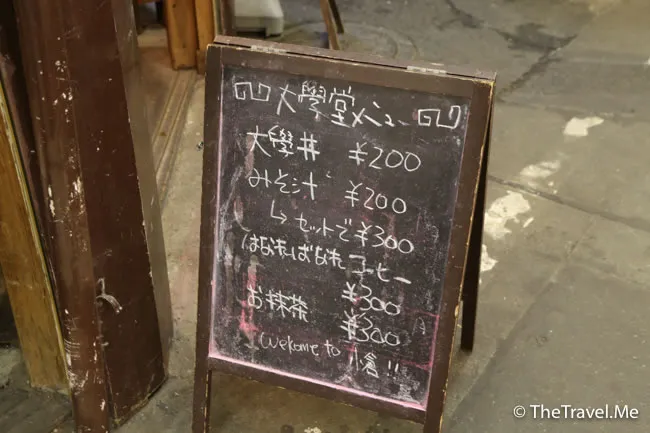 大學堂メニュー
大學丼 ¥200
みそ汁 ¥200
↳ セットで¥300
はなればなれコーヒー
¥300
お抹茶 ¥300
Welcome to 小倉!!
© TheTravel.Me